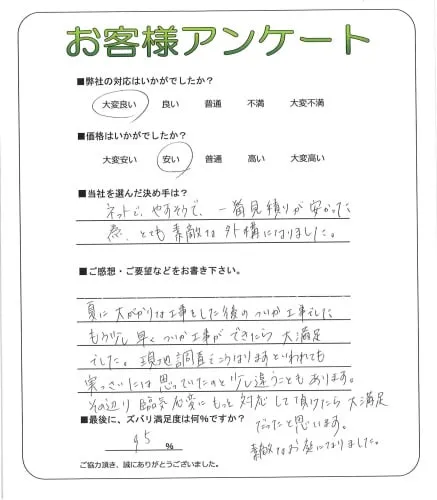 お客様アンケート
■弊社の対応はいかがでしたか?
大変良い 良い 普通 不満 大変不満
■価格はいかがでしたか?
大変安い 安い 普通 高い 大変高い
■当社を選んだ決め手は?
ネットで、やすそうで、一番見積りが安かった
為、とても素敵な外構になりました。
■ご感想・ご要望などをお書き下さい。
夏に大がかりな工事をした後のついか工事でした
もう少し早くついか工事ができたら大満足
でした。現地調査でこうなりますといわれても
実っさいには思っていたのと少し違うこともあります。
その辺り臨気応変にもっと対応して頂けたら大満足
だったと思います。
素敵なお庭になりました。
■最後に、ズバリ満足度は何%ですか?
95 %
ご協力頂き、誠にありがとうございました。